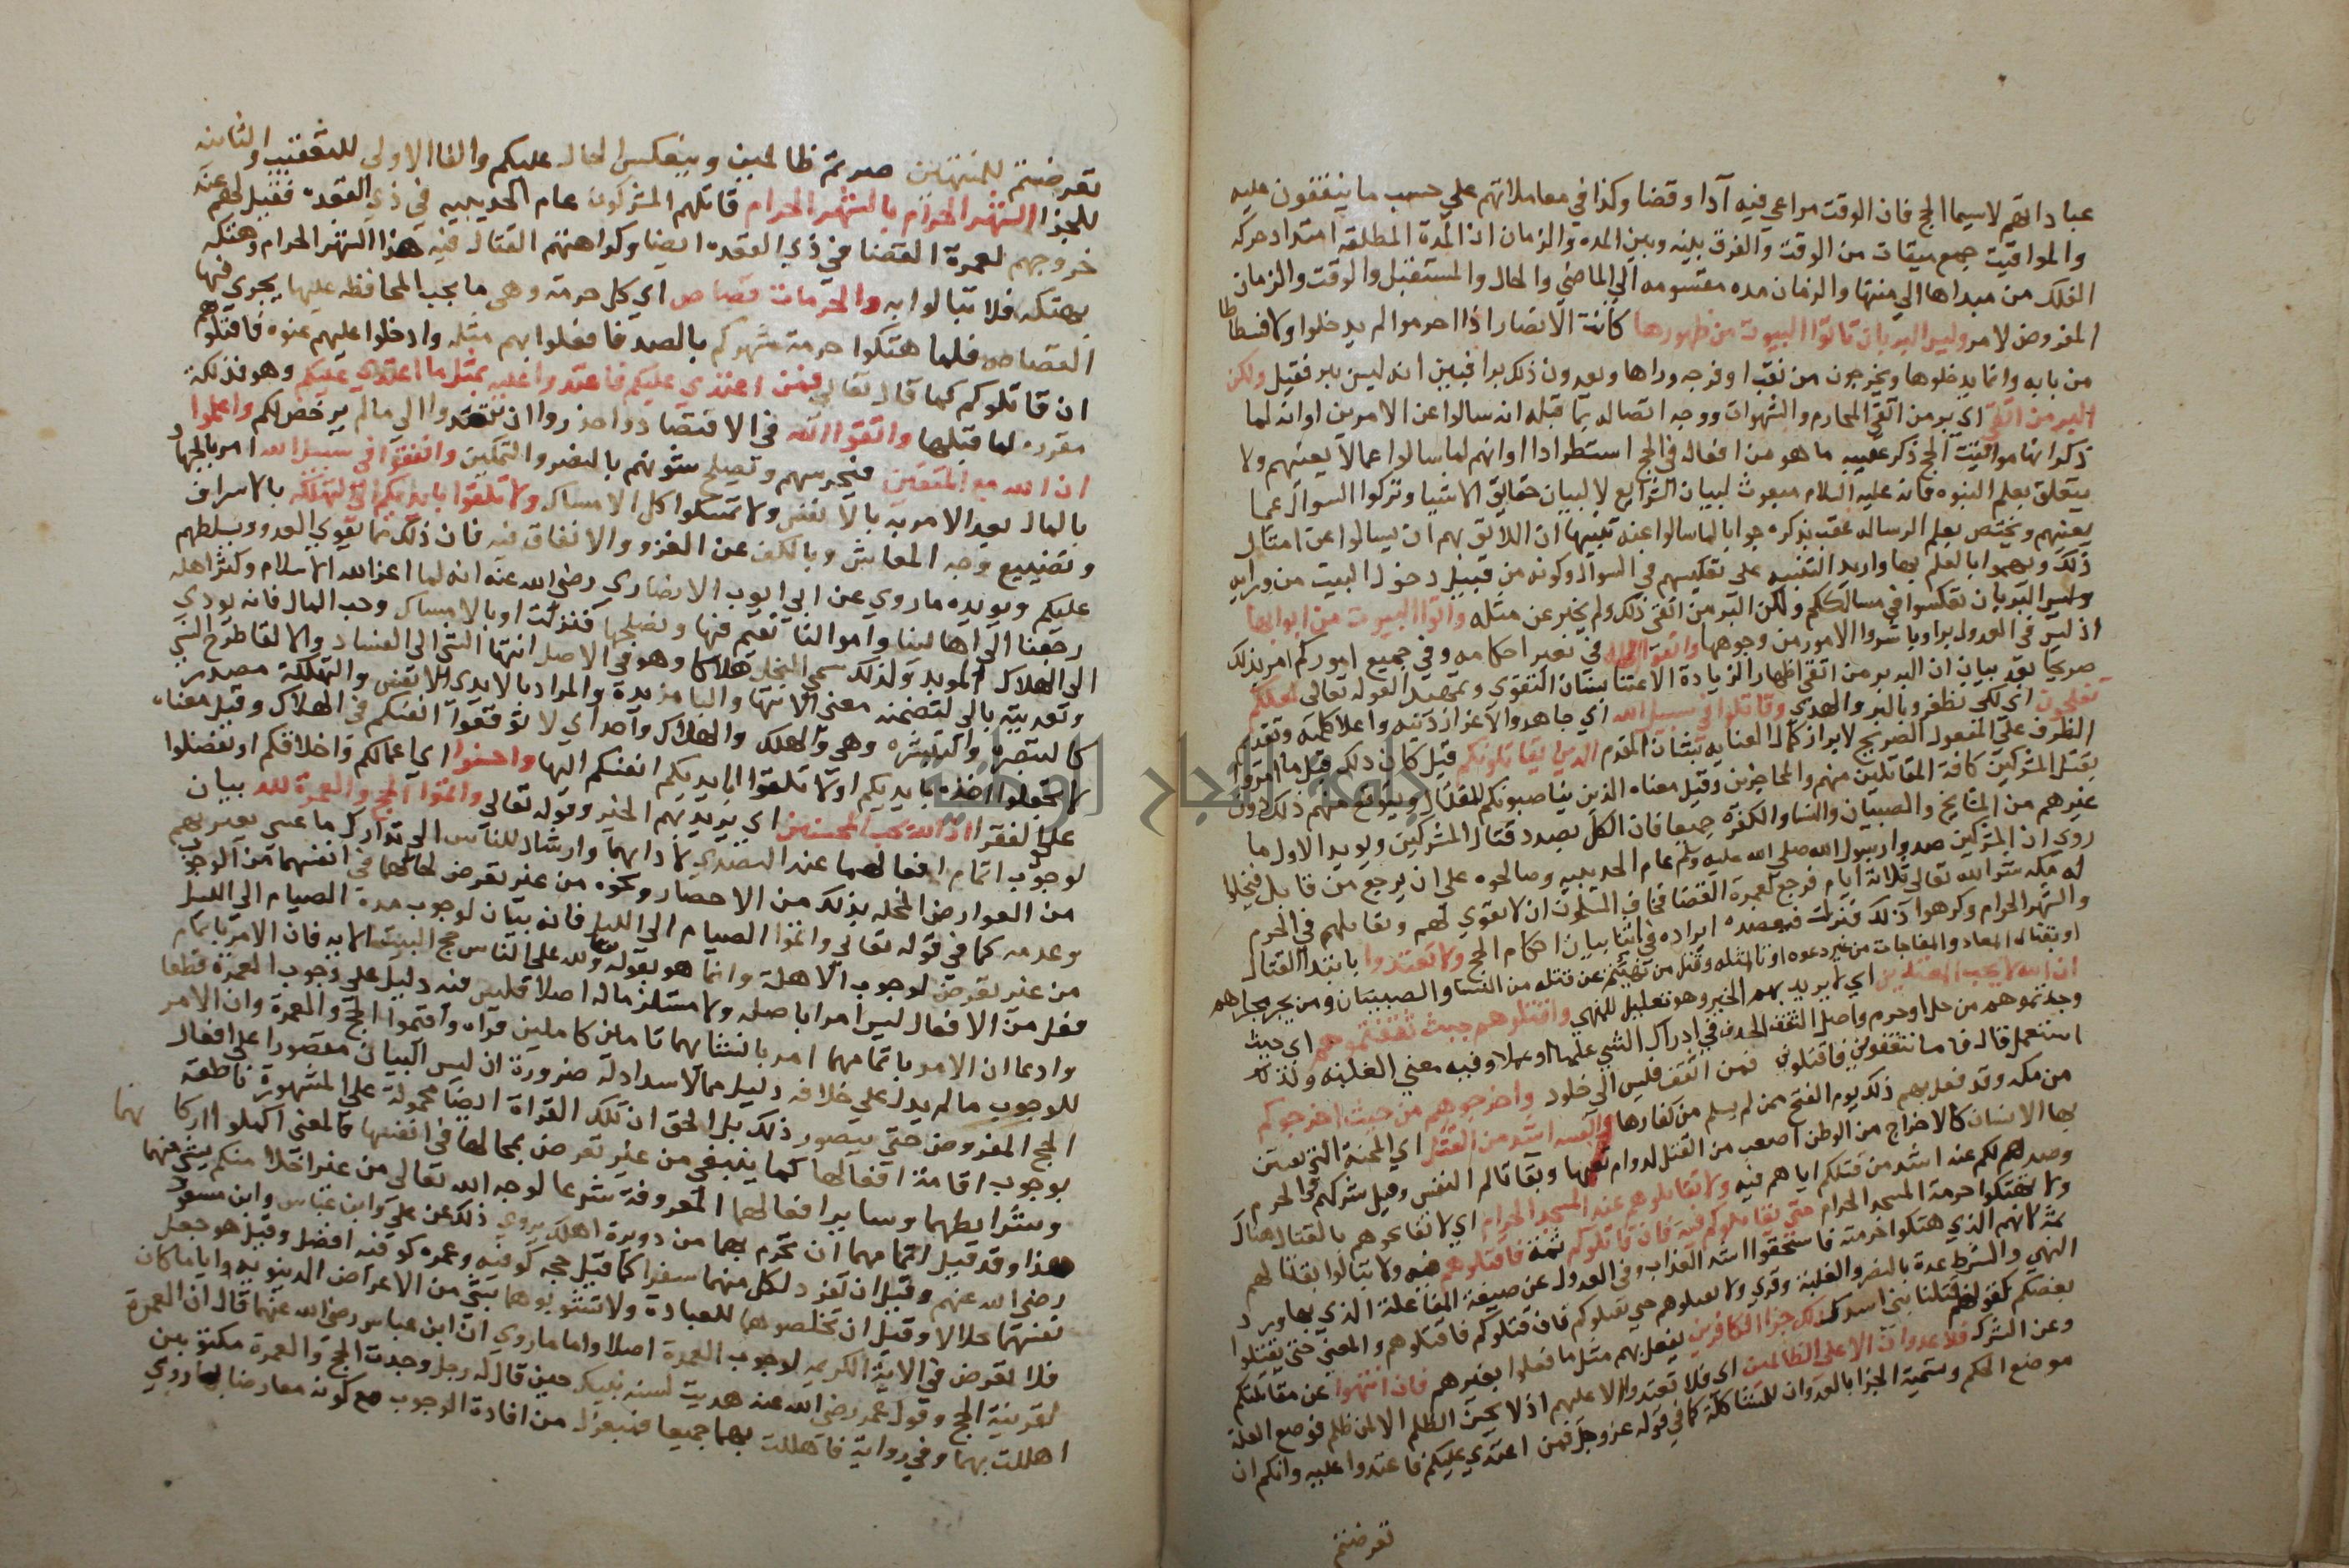 عباداتهم لاسيما الحج فان الوقت مراعي فيه آدا وقضا وكذا في معاملاتهم علي حسب ما يتفقون عليه
والمواقيت جمع ميقات من الوقت والفرق بينه وبين المدة والزمان ان المدة المطلقة امتداد حركة
الفلك من مبداها الي منتهاها والزمان مدة مقسومة الي الماضي والحال والمستقبل والوقت والزمان
المفروض لامر وليس البر بان تاتوا البيوت من ظهورها كانت الانصار اذا احرموا لم يدخلوا ولا فسطاطا
من بابه وانما يدخلوها ويخرجون من نقب او فرجه وراها ويعدون ذلك برا فبين انه ليس ببر فقيل ولكن
البر من اتقي اي بر من اتقي المحارم والشهوات ووجه اتصاله بما قبله انه سالوا عن الامرين او انه لما
ذكر انها مواقيت الحج ذكر عقيبه ما هو من افعاله في الحج استطرادا او انهم لما سالوا عما لا يعنيهم ولا
يتعلق بعلم النبوه فانه عليه السلام مبعوث لبيان الشرايع لا لبيان حقايق الاشيا وتركوا السوال عما
يعنيهم ويختص بعلم الرساله عقب بذكره جوابا لما سالوا عنه تنبيها ان اللايق بهم ان يسالوا عن امثال
ذلك ويهموا بالعلم بها واريد التنبيه علي تعكيسهم في السوال وكونه من قبيل دخول البيت من ورايه
وليس البر بان تعكسوا في مسالككم ولكن البر من اتقي ذلك ولم يجبر عن مثله واتوا البيوت من ابوابها
اذ ليس في العدول بر او باشروا الامور من وجوهها واتقوا الله في تغير احكامه وفي جميع اموركم امر بذلك
صريحا بعد بيان ان البر بر من اتقي اظهارا لزيادة الاعتنا بشان التقوي وتمهيدا لقوله تعالي لعلكم
تفلحون اي لكي تظفروا بالبر والهدي وقاتلوا في سبيل الله اي جاهدوا لاعزاز دينه واعلا كلمته وتقديم
الظرف علي المفعول الصريح لابراز كمال العنايه بشان المقدم الذين يقاتلونكم قيل كان ذلك قبل ما امروا
بقتل المشركين كافة المقاتلين منهم والمحاجزين وقيل معناه الذين يناصبونكم للقتال ويتوقع منهم ذلك دون
غيرهم من المشايخ والصبيان والنسا او الكفرة جميعا فان الكل بصدد قتال المشركين ويويد الاول ما
روي ان المشركين صدوا رسول الله صلي الله عليه وسلم عام الحديبيه وصالحوه علي ان يرجع من قابل فيخلوا
له مكه شرفها الله تعالي ثلاثة ايام فرجع لعمرة القضا فخاف المسلمون ان لا يفوي لهم ويقاتلهم في الحرم
والشهر الحرام وكرهوا ذلك فنزلت فيعضده ايراده في اثنا بيان احكام الحج ولا تعتدوا بابتدا القتال
او بقتال المعاد والمفاجات من غير دعوه او بالمثله وقتل من نهيتم عن قتله من النسا والصبيان ومن يجري مجراهم
ان الله لا يحب المعتدين اي لا يريد بهم الخير وهو تعليل للنهي واقتلوهم حيث ثقفتموهم اي حيث
وجدتموهم من حل او حرم واصل الثقف الحدق في ادراك الشي علما او عملا وفيه معني الغلبه ولذلك
استعمل قال فاما تثقفوني فاقتلوني فمن اثقف فليس الي خلود واخرجوهم من حيث اخرجوكم
من مكه وقد فعل بهم ذلك يوم الفتح ممن لم يسلم من كفارها والفتنة اشد من القتل اي المحنة التي يفتتن
بها الانسان كالاخراج من الوطن اصعب من القتل لدوام تعبها وبقا تالم النفس وقيل شركهم في الحرم
وصدهم لكم عنه اشد من قتلكم اياهم فيه ولا تقاتلوهم عند المسجد الحرام اي لا تفاتحوهم بالقتال هناك
ولا تهتكوا حرمة المسجد الحرام حتي يقاتلوكم فيه فان قاتلوكم ثمة فاقتلوهم فيه ولا تبالوا بقتالهم
ثمة لانهم الذي هتكوا حرمته فاستحقوا اشد العذاب وفي العدول عن صيغة المفاعلة الذي بها ورد
النهي والشرط عدة بالنصر والغلبة وقري ولا تقتلوهم حتي يقتلوكم فان قتلوكم فاقتلوهم والمعني حتي يقتلوا
بعضكم كقولهم قتلنا بني اسد كذلك جزا الكافرين يفعل بهم مثل ما فعلوا بغيرهم فان انتهوا عن مقاتلتكم
وعن الشرك فلا عدوان الا علي الظالمين اي فلا تعتدوا الا عليهم اذ لا يحسن الظلم الا لمن ظلم فوضع العلة
موضع الحكم وتسمية الجزا بالعدوان للمشاكلة كما في قوله عز وجل فمن اعتدي عليكم فاعتدوا عليه وانكم ان
تعرضتم
تعرضتم للمنتهين صرتم ظالمين وينعكس الحال عليكم والفا الاولي للتعقيب والثانيه
للجزا الشهر الحرام بالشهر الحرام قاتلهم المشركون عام الحديبيه في ذي القعده فقيل لهم عند
خروجهم لعمرة القضا في ذي القعده ايضا وكراهتهم القتال فيه هذا الشهر الحرام وهتكه
بهتكه فلا تبالوا به والحرمات قصاص اي كل حرمة وهي ما يجب المحافظه عليها يجري فيها
القصاص فلما هتكوا حرمة شهركم بالصد فافعلوا بهم مثله وادخلوا عليهم عنوه فاقتلوهم
ان قاتلوكم كما قال تعالي فمن اعتدي عليكم فاعتدوا عليه بمثل ما اعتدي عليكم وهو فذلكة
مقررة لما قبلها واتقوا الله في الاقتصاد واحذروا ان تعتدوا الي مالم يرخص لكم واعلموا
ان الله مع المتقين فيحرسهم ويصلح شئونهم بالنصر والتمكين وانفقوا في سبيل الله امر بالجهاد
بالمال بعد الامر به بالانفس ولا تمسكوا كل الامساك ولا تلقوا بايديكم الي التهلكه بالاسراف
وتضييع وجه المعاش وبالكف عن الغزو والانفاق فيه فان ذلك مما يقوي العدو ويسلطهم
عليكم ويويده ما روي عن ابي ايوب الانصاري رضي الله عنه انه لما اعز الله الاسلام وكثر اهله
رجعنا الي اهالينا واموالنا نقيم فيها ونصلحها فنزلت او بالامساك وحب المال فانه يودي
الي الهلاك الموبد ولذلك سمي البخل هلاكا وهو في الاصل انتها الشي الي الفساد والالقا طرح الشي
وتعديته بالي لتضمنه معني الانتها والبا مزيدة والمراد بالايدي الانفس والتهلكة مصدر
كالتنصره والتستره وهي والهلك والهلاك واحد اي لا توقعوا انفسكم في الهلاك وقيل معناه
لا تجعلوها اخذه بايديكم او لا تلقوا بايديكم انفسكم اليها واحسنوا اي اعمالكم واخلاقكم او تفضلوا
علي الفقرا ان الله يحب المحسنين اي يريد بهم الخير وقوله تعالي واتموا الحج والعمرة لله بيان
لوجوب اتمام افعالهما عند التصدي لادائهما وارشاد للناس الي تدارك ما عسي يعتريهم
من العوارض المخله بذلك من الاحصار ونحوه من غير تعرض لحالهما في انفسهما من الوجوب
وعدمه كما في قوله تعالي واتموا الصيام الي الليل فانه بيان لوجوب مدة الصيام الي الليل
من غير تعرض لوجوب الاهلة وانما هو بقوله تعالي ولله علي الناس حج البيت الايه فان الامر باتمام
فعل من الافعال ليس امرا باصله ولا مستلزما له اصلا فليس فيه دليل علي وجوب العمرة قطعا
وادعا ان الامر باتمامهما امر بانشائهما تامين كاملين قراه واقيموا الحج والعمرة وان الامر
للوجوب مالم يدل علي خلافه دليل مما لا سداد له ضرورة ان ليس البيان مقصورا علي افعال
الحج المفروض حتي يتصور ذلك بل الحق ان تلك القراة ايضا محمولة علي المشهورة ناطقة
بوجوب اقامة افعالها كما ينبغي من غير تعرض بحالها في انفسها فالمعني اكملوا اركانهما
وشرائطهما وساير افعالهما المعروفة شرعا لوجه الله تعالي من غير اخلال منكم بشي منهما
هذا وقد قيل اتمامهما ان تحرم بهما من دويرة اهلك يروي ذلك عن علي وابن عباس وابن مسعود
رضي الله عنهم وقيل ان تفرد لكل منهما سفرا كما قيل حجه كوفيه وعمره كوفيه افضل وقيل هو جعل
نفقتهما حلالا وقيل ان تخلصوها للعبادة ولا تشوبوها بشي من الاعراض الدينويه وايا ما كان
فلا تعرض في الاية الكريمه لوجوب العمرة اصلا واما ما روي ان ابن عباس رضي الله عنهما قال ان العمرة
لقرينة الحج وقول عمر رضي الله عنه هديت لسنه نبيك حين قال له رجل وجدت الحج والعمرة مكتوبين
اهللت بهما وفي رواية فاهللت بهما جميعا فبمعزل من افادة الوجوب مع كونه معارضا بما روي